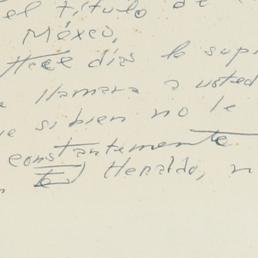 el título de
México,
Hace días lo supi
llamara a usted
e si bien no le
constantemente
Heraldo, n